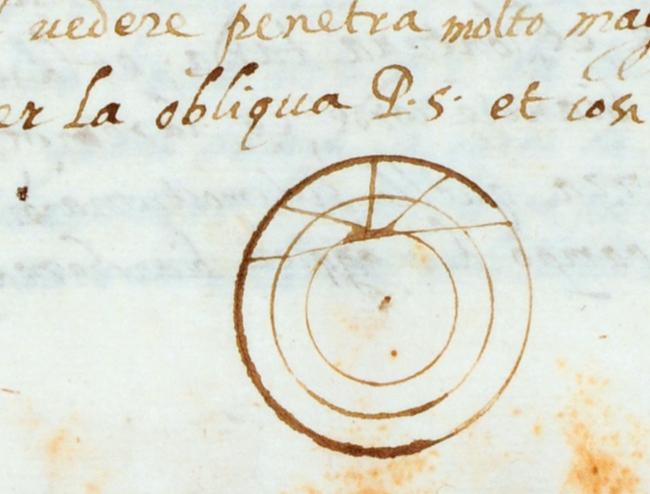 vedere penetra molto mag
er La obliqua P.s. et cosi